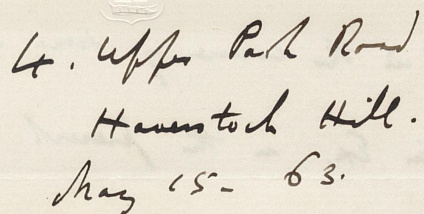 4. Upper Park Road
Haverstock Hill.
May 15 - 63.